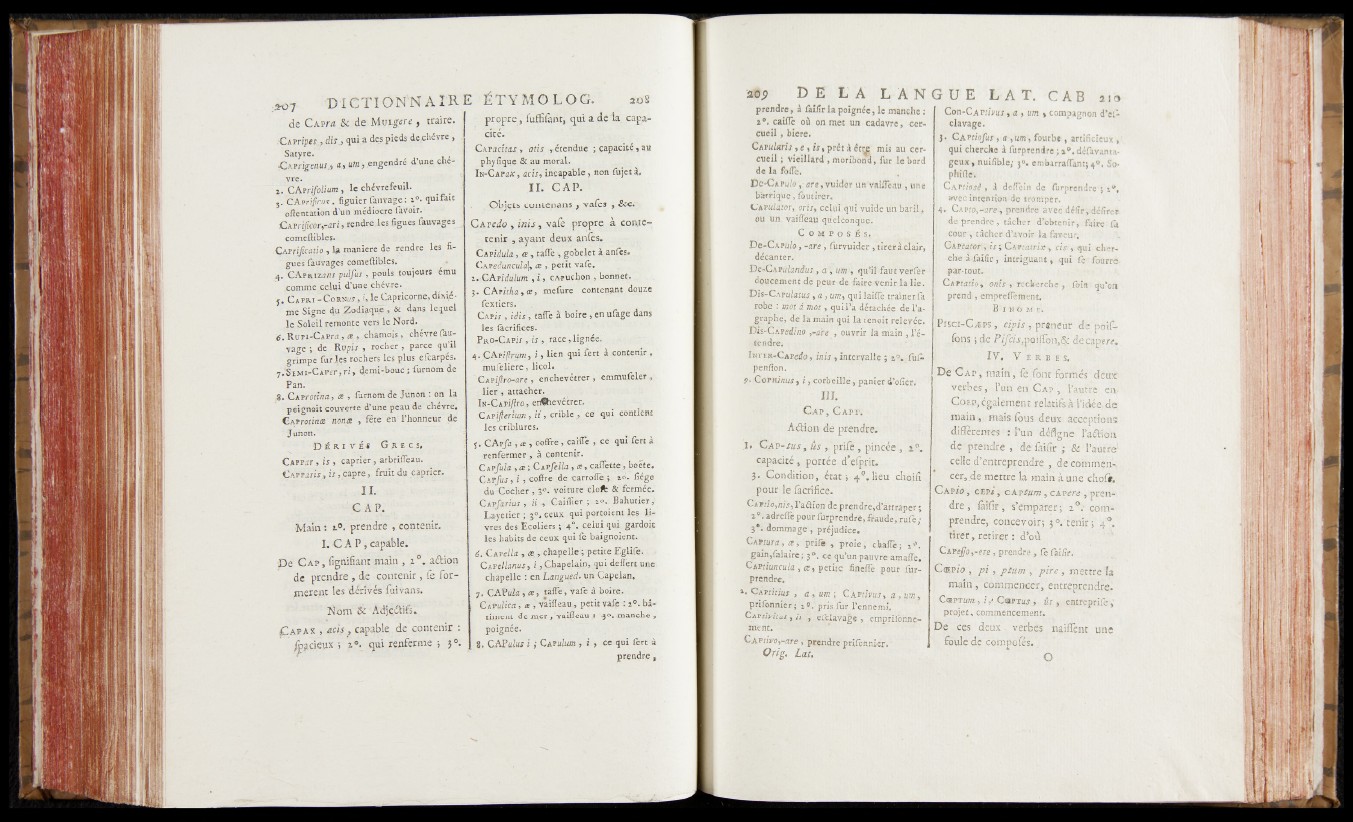 207 DICTIONNAIRE ÉTYMOLOG. 208
de CAPra & de MUlgere, traire.
CAPripes, dis, qui a des pieds de chévre,
Satyre.
CAPrigenus, a, um, engendré d'une ché-
vre.
2. CAPrifolium, le chévrefeuil.
3. CAPrificus, figuier ſauvage: 2°. qui fait
oſtentation d'un médiocre ſavoir.
CAPrificor,-ari, rendre les figues ſauvages
comeſtibles.
CAPrificatio, la maniere de rendre les fi-
gues ſauvages comeſtibles.
4. CAPRIZans pulſus, pouls toujours ému
comme celui d'une chévre.
5. CAPRI-CORNus, i, le Capricorne, dixié-
me Signe du Zodiaque, & dans lequel
le Soleil remonte vers le Nord.
6. RUPI-CAPRA, æ, chamois, chévre ſau-
vage; de Rupis, rocher, parce qu'il
grimpe ſur les rochers les plus eſcarpés.
7. SEMI-CAPer, ri, demi-bouc; ſurnom de
Pan.
8. CAProtina, æ, ſurnom de Junon: on la
peignait couverte d'une peau de chévre.
CAProtinæ nonæ, fête en l'honneur de
Junon.
DÉRIVÉS GRECS.
CAPPar, is, caprier, arbriſſeau.
CAPParis, is, capre, fruit du caprier.
II.
CAP.
Main: 2°. prendre, contenir.
I. CAP, capable.
De CAP, ſignifiant main, 2°. action
de prendre, de contenir, ſe for-
merent les dérivés ſuivans.
Nom & Adjectifs.
CAPAX, acis, capable de contenir:
ſpacieux; 2°. qui renferme; 3°.
propre, ſuffiſant, qui a de la capa-
cité.
CAPacitas, atis, étendue; capacité, au
phyſique & au moral.
IN-CAPax, acis, incapable, non ſujet à,
II. CAP.
Objets contenans, vaſes, &c.
CAPedo, inis, vaſe propre à conte-
tenir, ayant deux anſes.
CAPidula, æ, taſſe, gobelet à anſes.
CAPeduncula, æ, petit vaſe.
2. CAPidulum, i, CAPuchon, bonnet.
3. CAPitha, æ, meſure contenant douze
ſextiers.
CAPis, idis, taſſe à boire, en uſage dans
les ſacrifices.
PRO-CAPis, is, race, lignée.
4. CAPiſtrum, i, lien qui ſert à contenir,
muſeliere, licol.
CAPiſtro-are, enchevêtrer, emmuſeler,
lier, attacher.
IN-CAPiſtro, enchevêtrer.
CAPiſterium, ii, crible, ce qui contient
les criblures.
5. CAPſa, æ, coffre, caiſſe, ce qui ſert à
renfermer, à contenir.
CAPſula, æ; CAPſella, æ, caſſette, boëte.
CAPſus, i, coffre de carroſſe; 2°. ſiége
du Cocher, 3°. voiture cloſe & fermée.
CAPſarius, ii, Caiſſier; 2°. Bahutier,
Layetier; 3°. ceux qui portoient les li-
vres des Ecoliers; 4°. celui qui gardoit
les habits de ceux qui ſe baignoient.
6. CAPella, æ, chapelle; petite Egliſe.
CAPellanus, i, Chapelain, qui deſſert une
chapelle: en Langued. un Capelan.
7. CAPula, æ, taſſe, vaſe à boire.
CAPulica, æ, vaiſſeau, petit vaſe: 2°. bâ-
timent de mer, vaiſſeau; 3°. manche,
poignée.
8. CAPulus i; CAPulum, i, ce qui ſert à
prendre,
209 DE LA LANGUE LAT. CAB 210
prendre, à ſaiſir la poignée, le manche:
2°. caiſſe où on met un cadavre, cer-
cueil, biere.
CAPularis, e, is, prêt à être mis au cer-
cueil; vieillard, moribond, ſur le bord
de la foſſe.
DE-CAPulo, are, vuider un vaiſſeau, une
barrique, ſoutirer.
CAPulator, oris, celui qui vuide un baril,
ou un vaiſſeau quelconque.
COMPOSÉS.
DE-CAPulo, -are, ſurvuider, tirer à clair,
décanter.
DE-CAPulandus, a, um, qu'il faut verſer
doucement de peur de faire venir la lie.
DIS-CAPulatus, a, um, qui laiſſe traîner ſa
robe: mot à mot, qui l'a détachée de l'a-
graphe, de la main qui la tenoit relevée.
DIS-CAPedino, -are, ouvrir la main, l'é-
tendre.
INTER-CAPedo, inis, intervalle; 2°. ſuſ-
penſion.
9. COPhinus, i, corbeille, panier d'oſier.
III.
CAP, CAPT.
Action de prendre.
1. CAP-tus, ûs, priſe, pincée, 2°.
capacité, portée d'eſprit.
3. Condition, état; 4°. lieu choiſi
pour le ſacrifice.
CAPtio, nis, l'action de prendre, d'attraper;
2°. adreſſe pour ſurprendre, fraude, ruſe;
3°. dommage, préjudice.
CAPtura, æ, priſe, proie, chaſſe; 2°.
gain, ſalaire; 3°. ce qu'un pauvre amaſſe.
CAPtiuncula, æ, petite fineſſe pour ſur-
prendre.
2. CAPtitius, a, um; CAPtivus, a, um,
priſonnier; 2°. pris ſur l'ennemi.
CAPtivitas, is, eſclavage, empriſonne-
ment.
CAPtivo,-are, prendre priſonnier.
Orig. Lat.
CON-CAPtivus, a, um, compagnon d'eſ-
clavage.
3. CAPtioſus, a, um, fourbe, artificieux,
qui cherche à ſurprendre; 2°. déſavanta-
geux, nuiſible; 3°. embarraſſant; 4°. So-
phiſte.
CAPtiosè, à deſſein de ſurprendre; 2°.
avec intention de tromper.
4. CAPto,-are, prendre avec déſir, déſirer
de prendre, tâcher d'obtenir, faire ſa
cour, tâcher d'avoir la faveur.
CAPtator, is; CAPtatrix, cis, qui cher-
che à ſaiſir, intriguant, qui ſe fourre
par-tout.
CAPtatio, onis, recherche, ſoin qu'on
prend, empreſſement.
BINOME.
PISCI-CÆPS, cipis, preneur de poiſ-
ſons; de Piſcis, poiſſon, & de capere.
IV. VERBES.
De CAP, main, ſe ſont formés deux
verbes, l'un en CAP, l'autre en
COEP, également relatifs à l'idée de
main, mais ſous deux acceptions
différentes: l'un déſigne l'action
de prendre, de ſaiſir; & l'autre
celle d'entreprendre, de commen-
cer, de mettre la main à une choſe.
CAPio, CEPi, CAPtum, CAPere, pren-
dre, ſaiſir, s'emparer; 2°. com-
prendre, concevoir; 3°. tenir; 4°.
tirer, retirer: d'où
CAPeſſo,-ere, prendre, ſe ſaiſir.
CŒPio, pi, ptum, pire, mettre la
main, commencer, entreprendre.
CŒPtum, i, CŒPtus, ûs, entrepriſe,
projet, commencement.
De ces deux verbes naiſſent une
foule de compoſés.
O